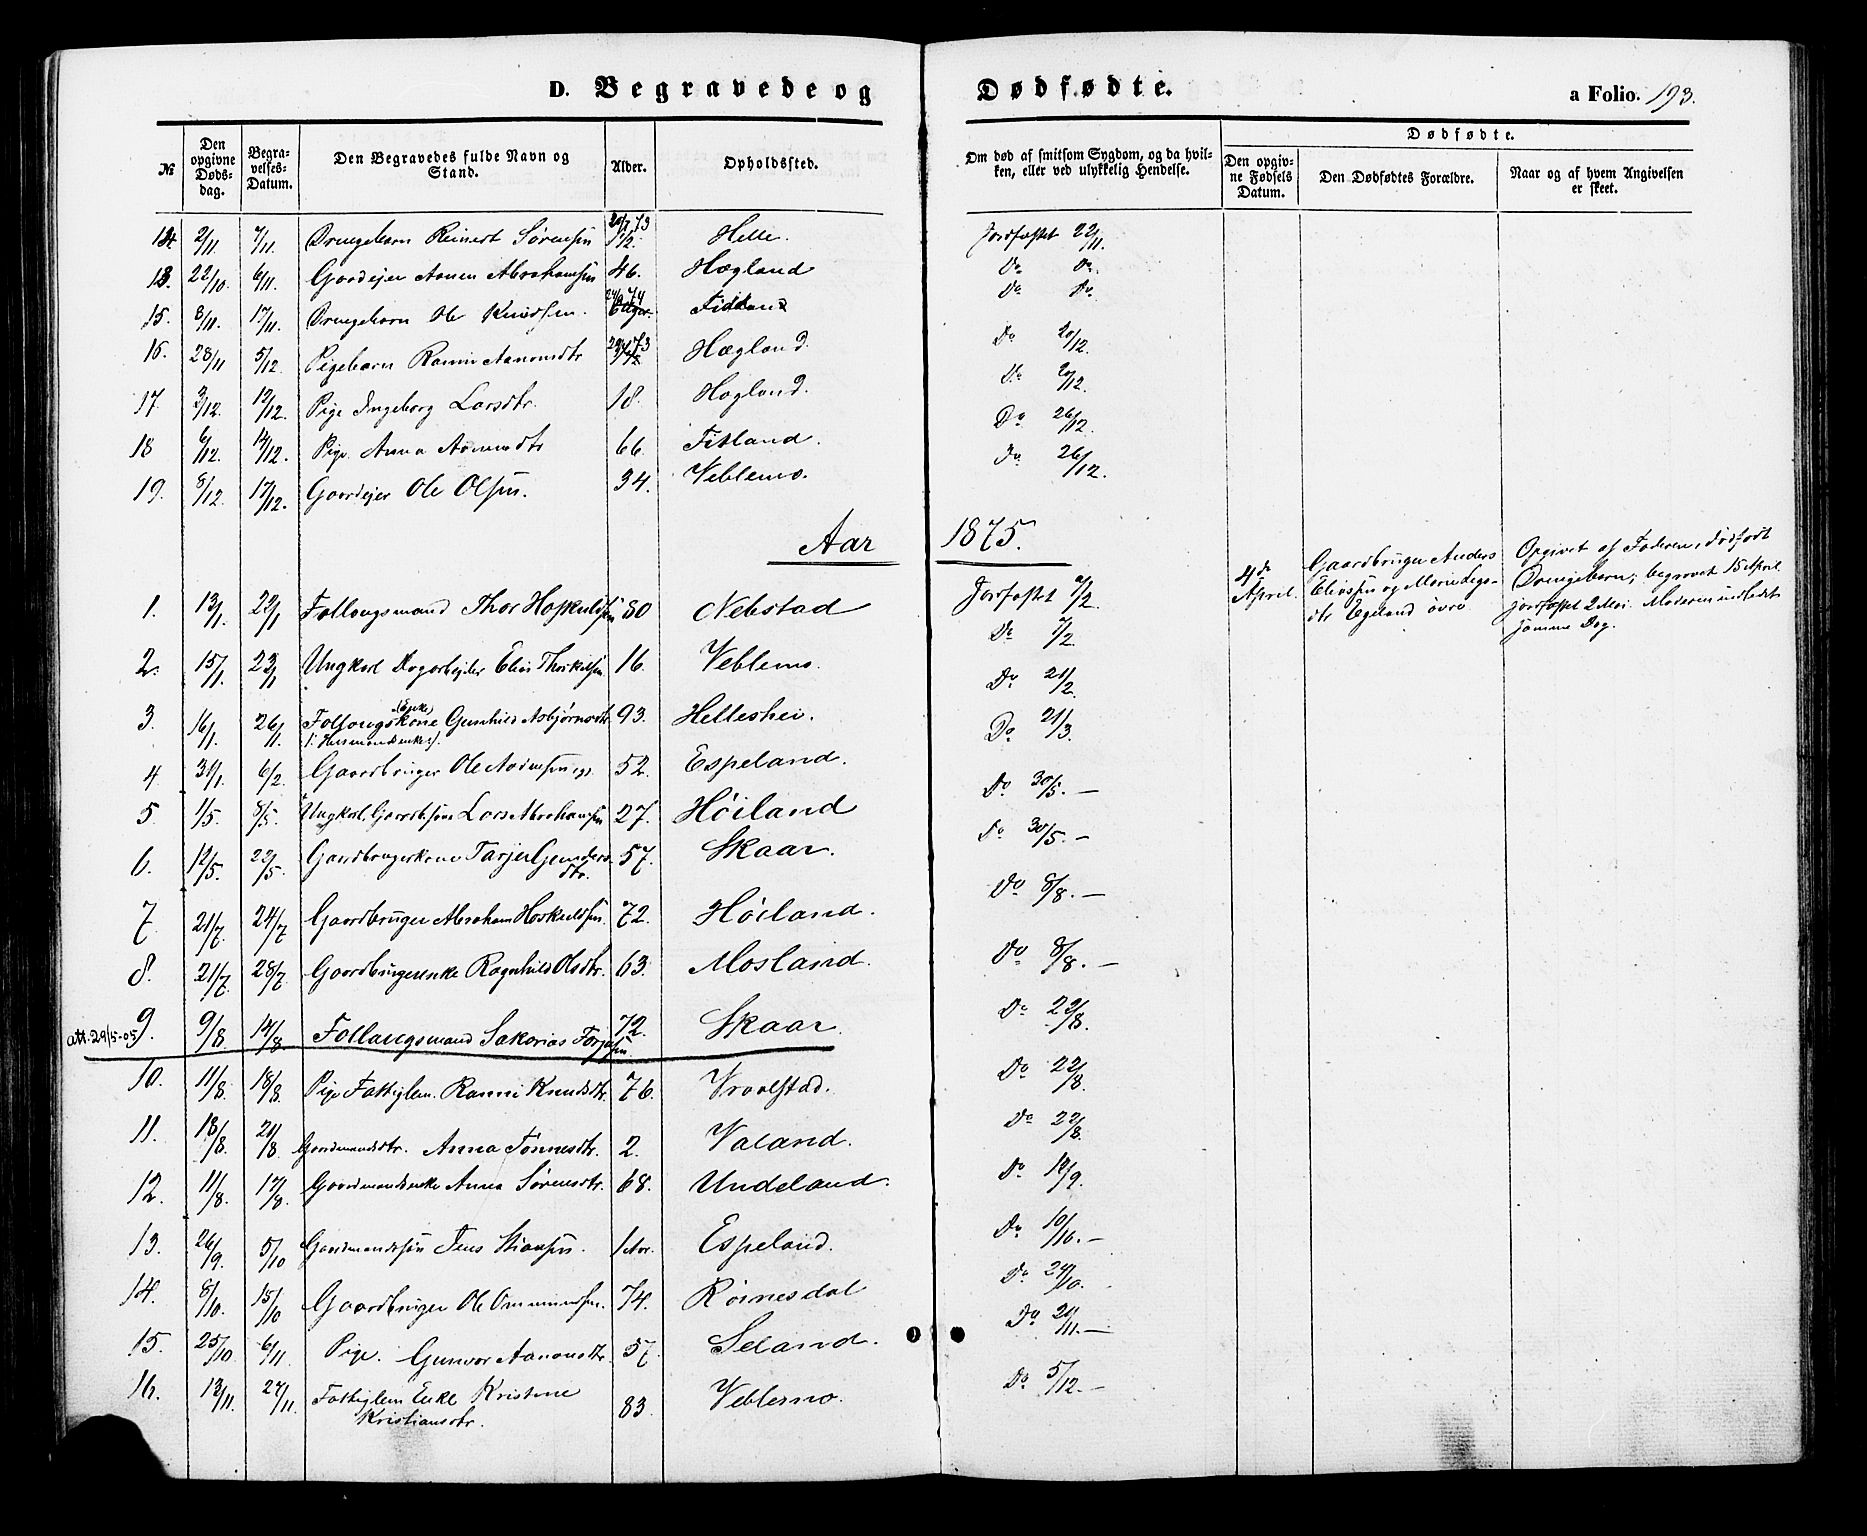 D. Begravede og Dødfødte. a Folio. 193.
№ | Den opgivne Døds-dag. | Begra-velses-Datum. | Den Begravedes fulde Navn og Stand. | Alder. | Opholdssted. | Om død af smitsom Sygdom, og da hvil-ken, eller ved ulykkelig Hendelse. | Dødfødte. | Den opgiv-ne Fødsels Datum. | Den Dødfødtes Forældre. | Naar og af hvem Angivelsen er skeet.
2/11 7/11 Drengebarn Reinert Sørensen 1 1/2 Helle. Jordfæstet 22/11.
22/10. 6/11. Gaardejer Aanen Abrahamsen 46. Hægland Do Do.
15. 8/11. 17/11. Drengebarn Ole Knudsen. Fidtland Do Do
16. 28/11 5/12. Pigebarn Ranni Aanonsdtr Hægland. Do 20/12.
17. 3/12. 13/12. Pige Ingeborg Larsdtr. 18. Hægland. Do 20/12.
18 6/12. 14/12. Pige Anna 66. Fitland. Do 26/12.
19. 8/12. 17/12. Gaardejer Ole Olsen. 34. Veblemo. Do 26/12.
Aar 1875.
1. 13/1. 22/1 Follaugsmand Thor Hoskuldsen 80 Nebstad Jordfæstet 7/2.
4de April. Gaardbruger Anders Eliassen og Marie
dtr Egeland øvre
Opgivet af Faderen, dødfødt
Drengebarn, begravet 15 April
jordfæstet 2 Mai. Moderen indledet
samme Dag.
2. 15/1. 23/1 Ungkarl Dagarbejder Elias Thorkelsen 16. Veblemo. Do 7/2.
3. 16/1. 26/1. Follaugskone Gunhild Asbjørnsdtr 93. Helleshei. Do 21/2.
Enke
/: Husmandsenke :/.
4 31/1. 6/2. Gaardbruger Ole 52. Espeland. Do 21/3.
5. 1/5. 8/5. Ungkarl, Gaardb.søn Lars Abrahamsen 27. Høiland Do 30/5. —
6. 12/5. 22/5. Gaardbrugerkone Tarjer 57. Skaar. Do 30/5. —
dtr.
7. 21/7. 24/7 Gaardbruger Abraham Hoskuldsen. 72. Høiland. Do 8/8. —
8. 21/7. 28/7 Gaardbrugerenke Ragnhild Olsdtr. 63. Mosland. Do 8/8. —
att. 29/5-05 9. 9/8 14/8 Follaugsmand Sakarias Tarjesen 72. Skaar. Do 22/8.
10. 11/8. 18/8. Pige Fattiglem. Ranni Knudsdtr. 76. Vraalstad. Do 22/8.
11. 18/8. 21/8. Gaardmandsdtr. Anna Tønnesdtr. 2. Valand. Do 22/8.
12. 11/8. 17/8. Gaardmandsenke Anna Sørensdtr. 68. Undeland. Do 12/9.
13. 26/9. 5/10 Gaardmandssøn Jens Stiansen. 1 Aar. Espeland. Do 10/10. —
14. 8/10. 15/10 Gaardbruger Ole Ommundsen. 74. Røinesdal Do 24/10.
15. 25/10 6/11. Pige. Gunvor Aanonsdtr 57. Seland. Do 21/11. —
16. 13/11. 27/11. Fattiglem Enke Kristine 83. Veblemo. Do 5/12. —
Kristiansdtr.